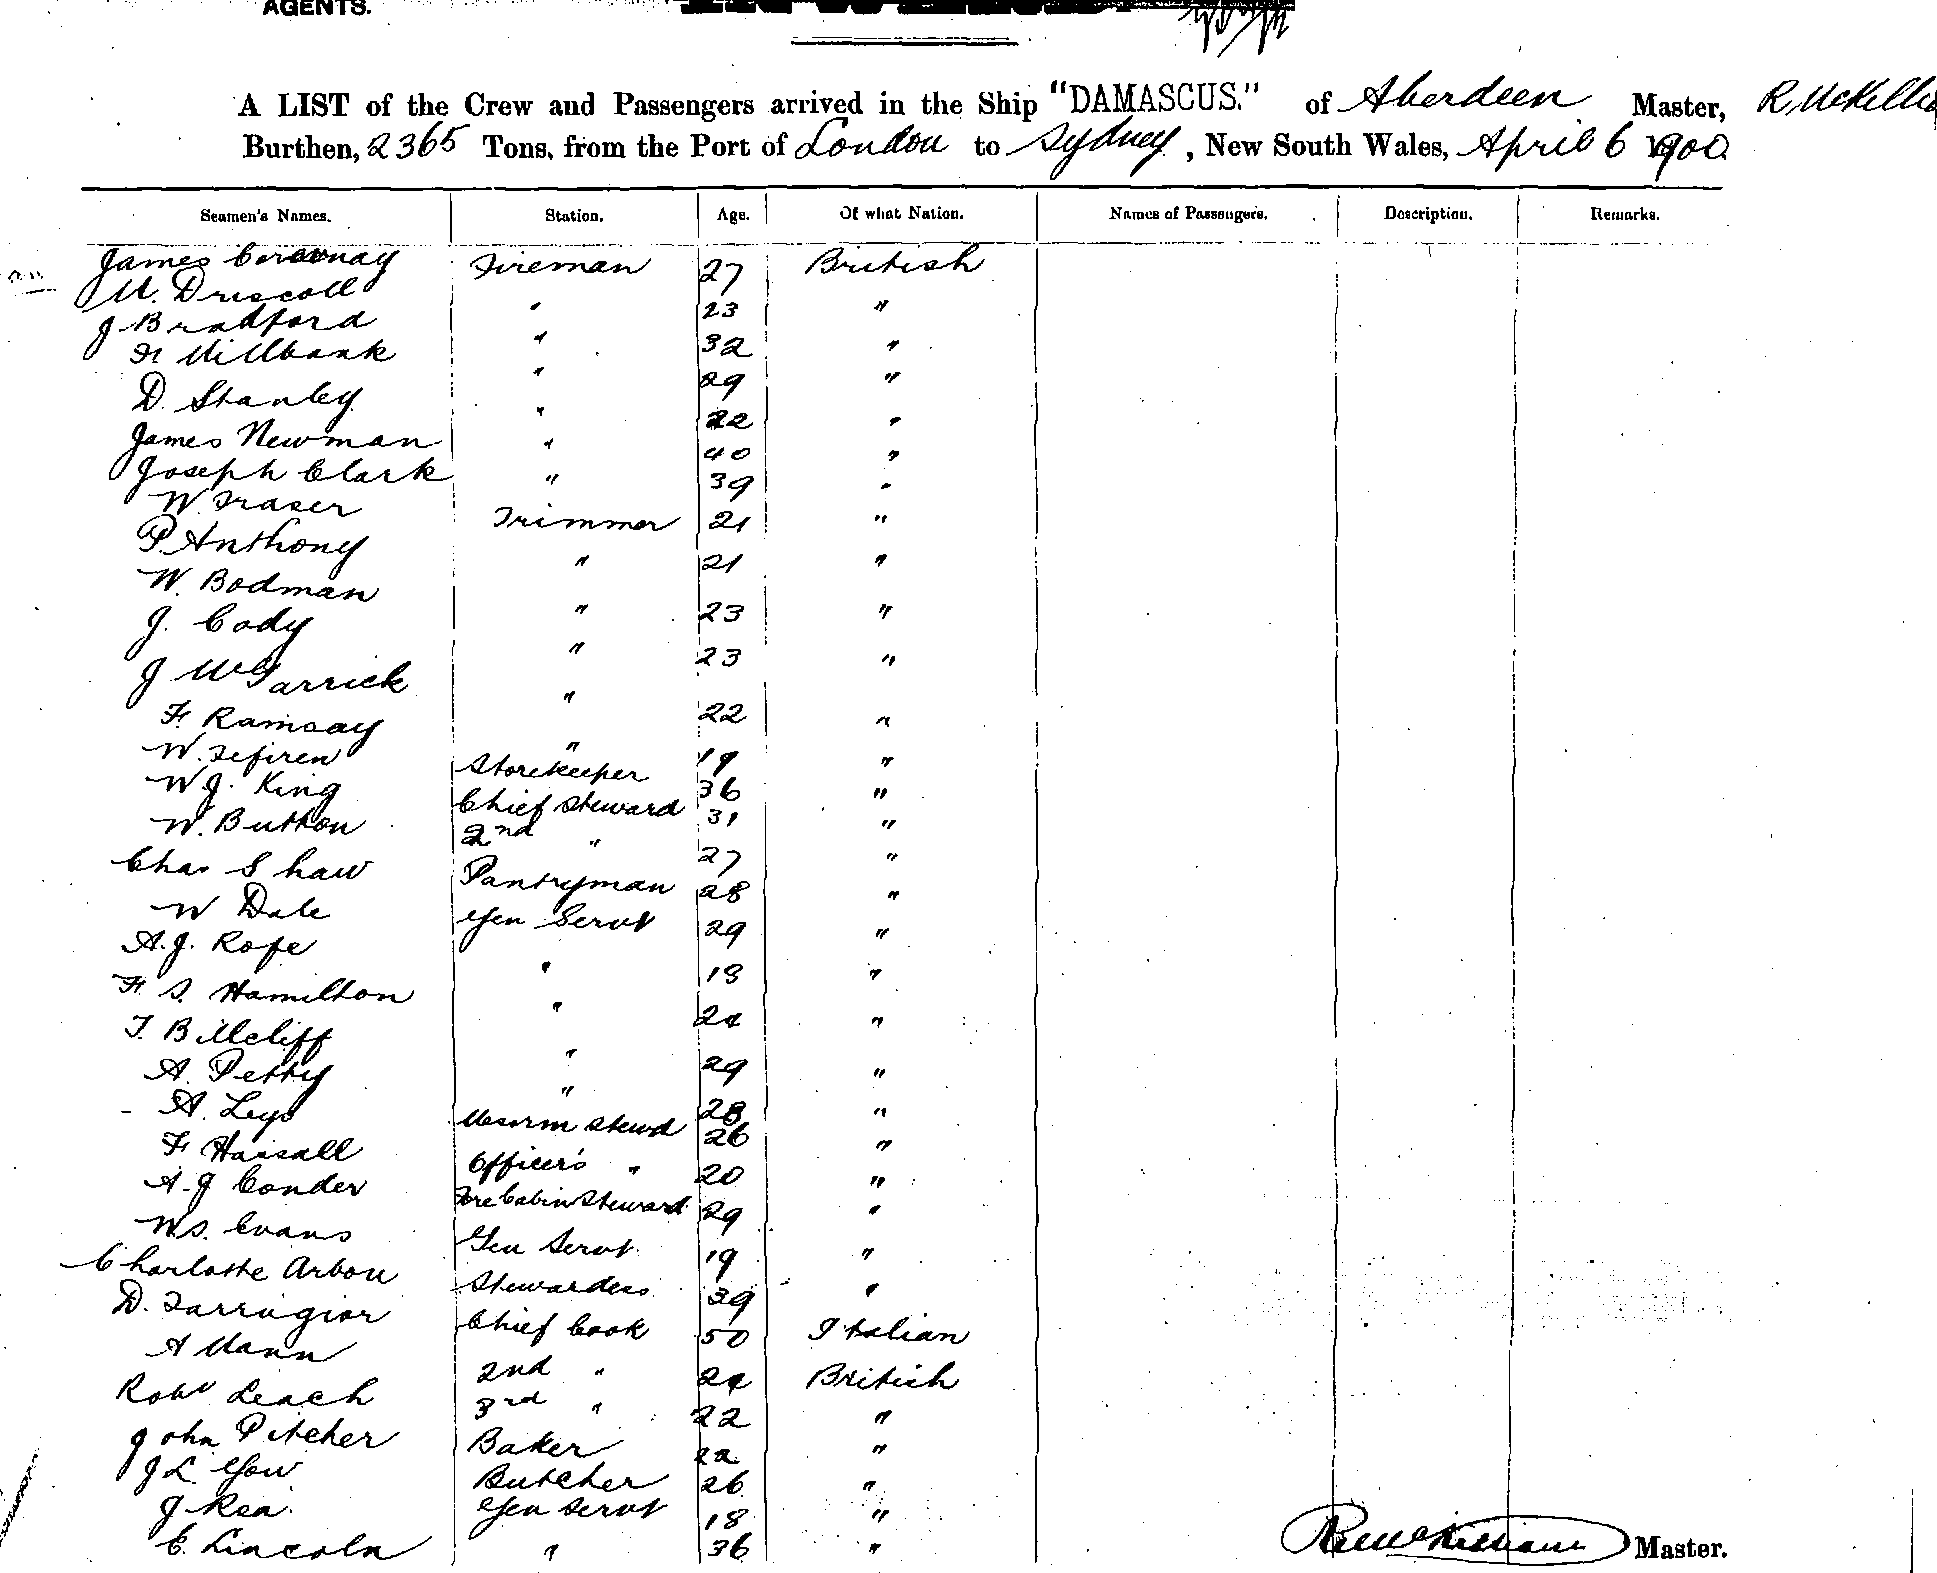 AGENTS.
A LIST of the Crew and Passengers arrived in the Ship "DAMASCUS." of Aberdeen Master,
Burthen, 2365 Tons, from the Port of London to Sydney, New South Wales, April 6 1900
Seamen's Names. Station. Age. Of what Nation. Names of Passengers. Description. Remarks.
James Fireman 27 British
M. Driscoll " 23 "
J Bradford " 32 "
F Millbank " 29 "
D. Stanley " 22 "
James Newman " 40 "
Joseph Clark " 39 "
W Fraser Trimmer 21 "
P. Anthony " 21 "
W. Bodman " 23 "
J. Cody " 23 "
J McGarrick " 22 "
F. Ramsay " 19 "
W. Storekeeper 36 "
W J. King Chief Steward 31 "
W. Button 2nd " 27 "
Chas Shaw Pantryman 28 "
W Dale Gen Servt 29 "
A. J. Rope " 18 "
F. S. Hamilton " 24 "
T. Billcliff " 29 "
A. Petty " 28 "
A. Leys Messrm Stewd 26 "
F Hassall Officer's " 20 "
A. J Conder Fore Cabin Steward 29 "
W S. Evans Gen Servt 19 "
Charlotte Arbon Stewardess 39 "
D. Farrugior Chief Cook 50 Italian
A Mann 2nd " 24 British
Robt Leach 3rd " 22 "
John Pitcher Baker 22 "
J L. Gow Butcher 26 "
J Rea Gen Servt 18 "
C. Lincoln " 36 "
Master.